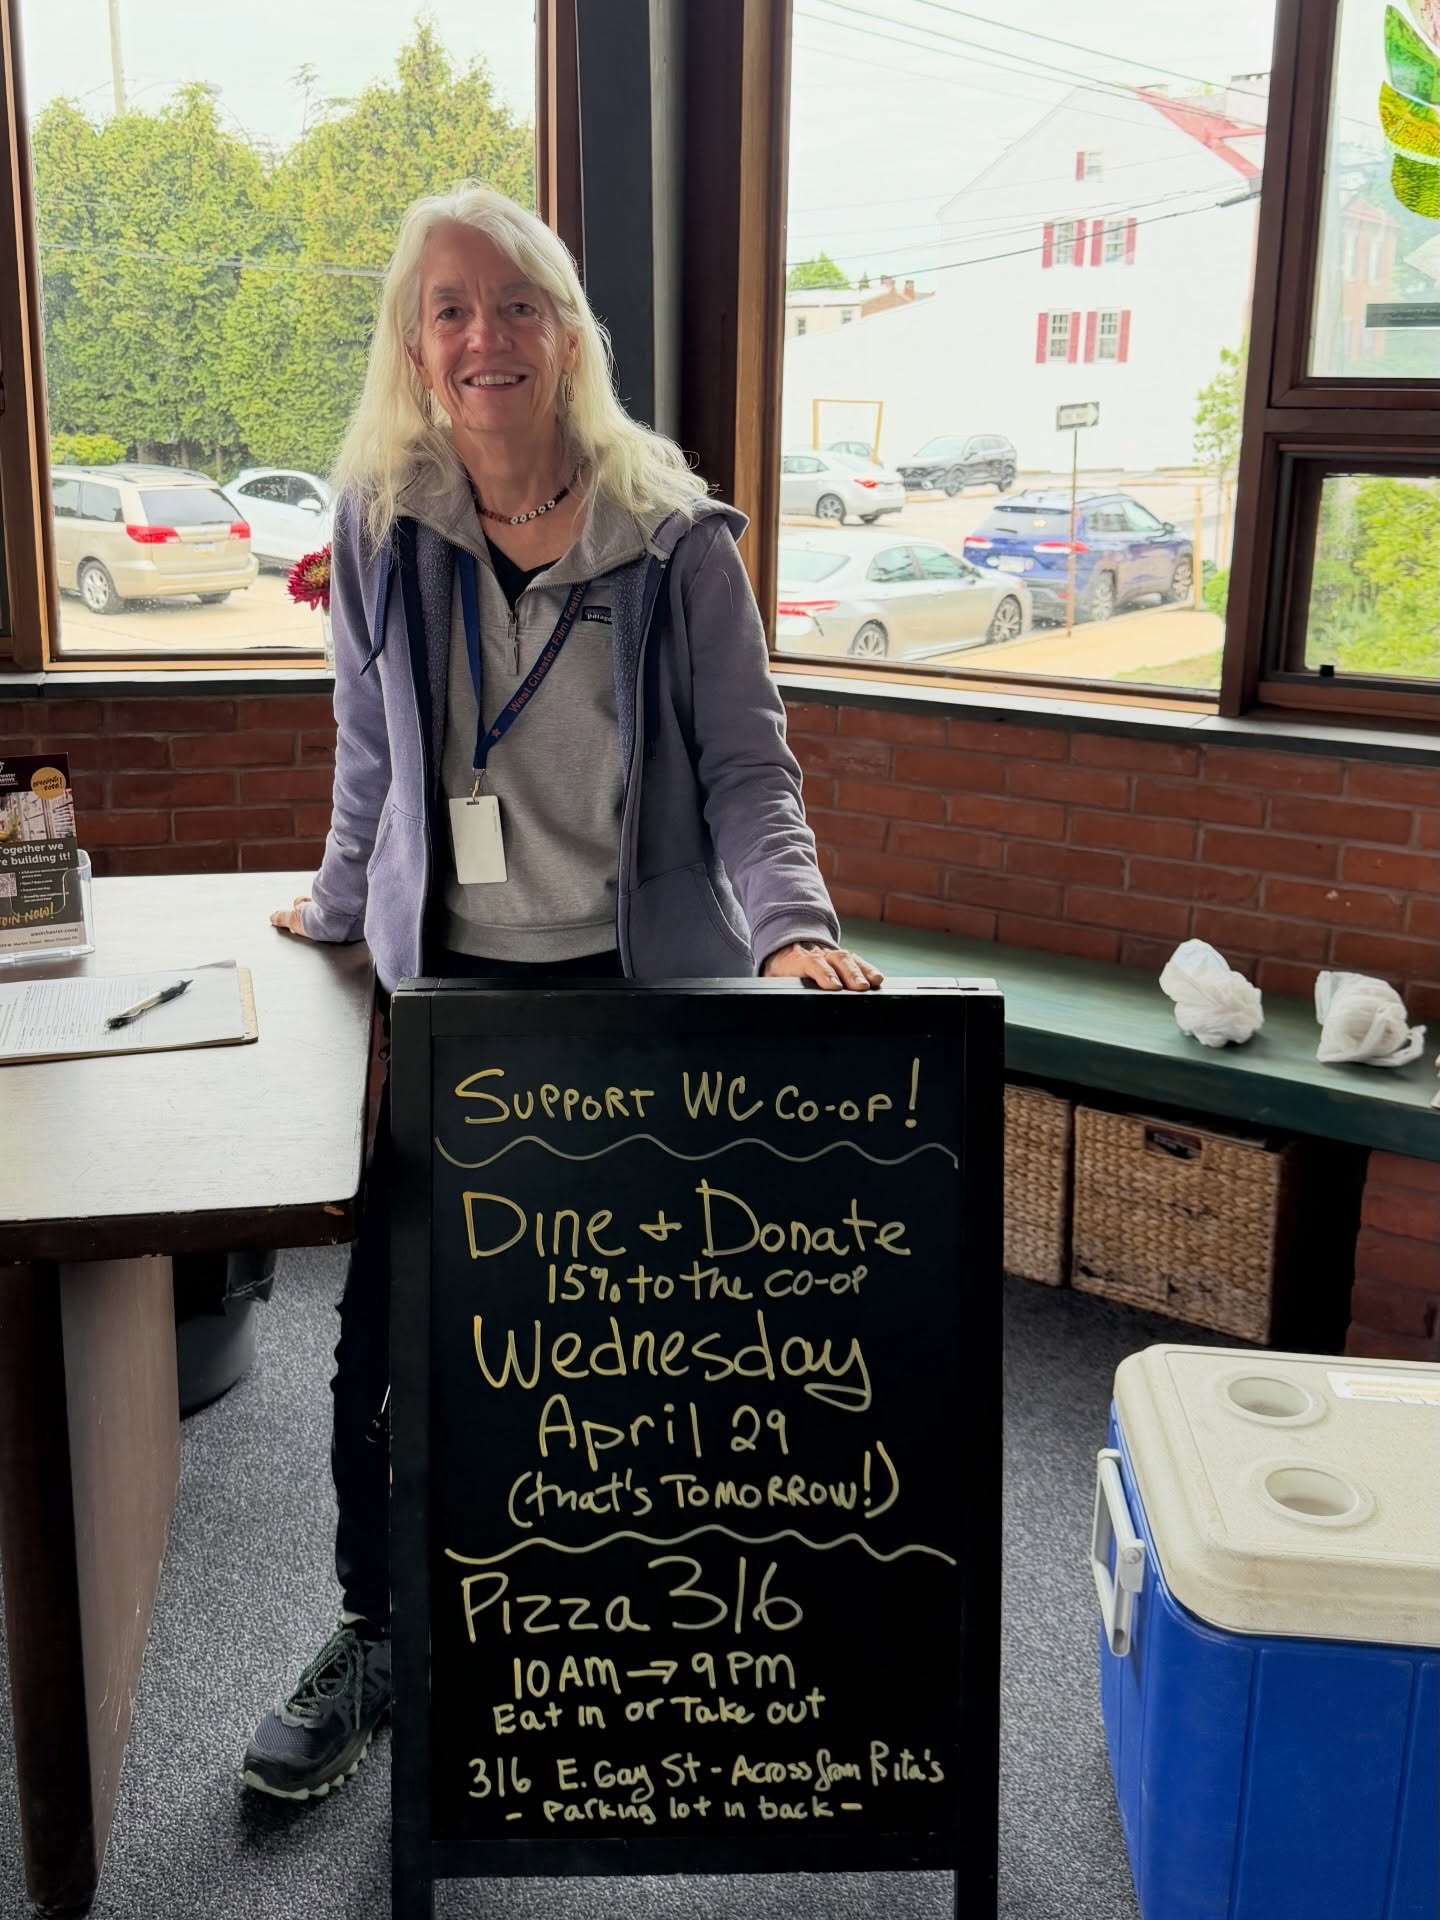 SUPPORT WC CO-OP!
Dine + Donate
15% to the CO-OP
Wednesday
April 29
(that's TOMORROW!)
Pizza 316
10 AM → 9 PM
Eat in or Take out
316 E. Gay St - Across from Rita's
- Parking lot in back -
West Chester Film Festiv
OPENING
2026!
Together we
re building it!
JOIN NOW!
westchester.coop